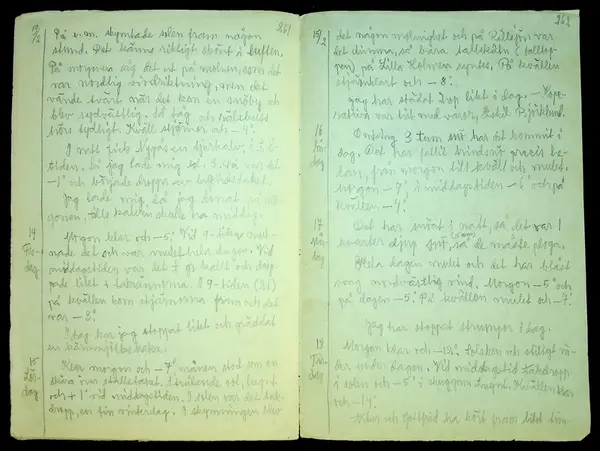 261
13/2 På e.m. skymtade solen fram någon
stund. Det känns riktigt skönt i luften.
På morgonen såg det ut på molnen, som det
var nordlig vindriktning, men det
vände tvärt när det kom en snöby och
blev sydvästlig, då tåg och
hörs tydligt. Kväll stjärnor och -4°.
I natt fick Nygås en tjurkalv,
tiden. Så jag lade mig kl. 3. Då var det
-1° och började droppa av
Jag lade mig, så jag
gonen. Lille kalven skulle ha middag.
14 Fre-dag
Morgon klar och -5°. Vid 9-tiden mul-
nade det och var mulet hela dagen. Vid
middagstiden var det + gr kallt och drop-
pade litet i takrännorna. I 9-tiden (21)
på kvällen kom stjärnorna fram och det
var -2°.
I dag har jag stoppat litet och gräddat
en
15 Lör-dag
Klar morgon och -7°, månen stod som en
skära över stallstaket. Strålande sol, lugnt
och +1° vid middagstiden. I solen var det tak-
dropp, en fin vinterdag. I skymningen blev
262
15/2 det någon molnighet och på Rillesjön var
det dimma, så bara tallskatan (talltop-
pen) på Lilla Holmen syntes. På kvällen
stjärnklart och -8°.
Jag har städat 2 vp litet i dag.
varit här med varor, Eskil Björklund.
16 Sön-dag
Omkring 3 tum snö har det kommit i
dag. Det har fallit vindsnö precis he-
lan, från morgon till kväll och mulet.
Morgon -7°, i middagstiden -6° och på
kvällen -4°.
17 Mån-dag
Det har snöat i natt, så det var 1
kvarter djup snö, så de måste ploga.
Hela dagen mulet och det har blåst
svag nordvästlig vind. Morgon -5° och
på dagen -5°. På kvällen mulet och -7°.
Jag har stoppat strumpor i dag.
18 Tis-dag
Morgon klar och -12°. Solsken och stiligt vä-
der under dagen. Vid middagstid takdropp
i solen och -5° i skuggan. Lugnt. Kvällen klar
och -14°.
och Gottfrid ha kört fram litet tim-